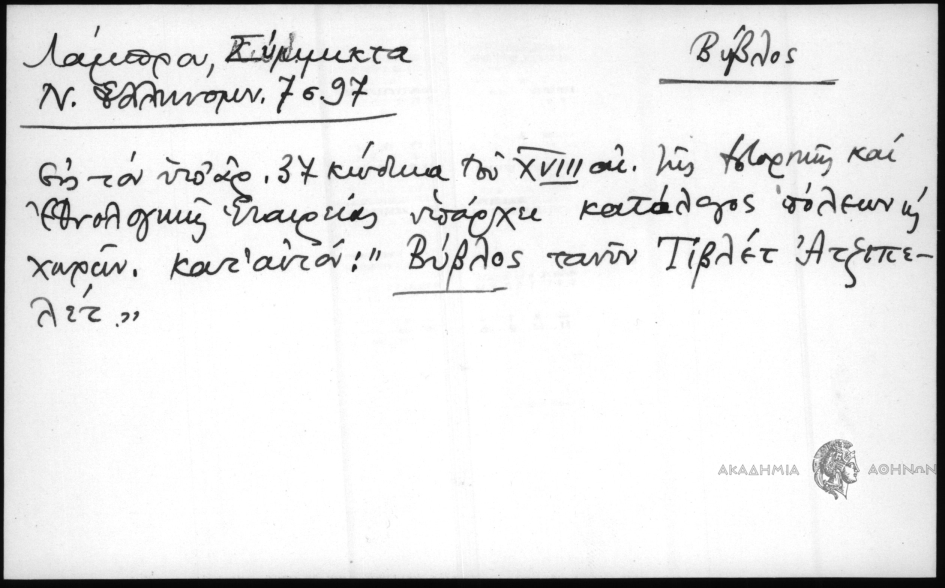 Λάμπρου, Σύμμικτα
Βύβλος
Ν. Ἑλληνομν. 7 σ. 97
Εἰς τόν ὑπ' ἀρ. 37 κώδικα τοῦ XVIII αἰ. τῆς Ἱστορικῆς καί
Ἐθνολογικῆς Ἑταιρείας ὑπάρχει κατάλογος πόλεων κ
χωρῶν. κατ' αὐτόν: " Βύβλος τανῦν Τίβλέτ Ἀτζιπε-
λέτ."
ΑΚΑΔΗΜΙΑ ΑΘΗΝΩΝ